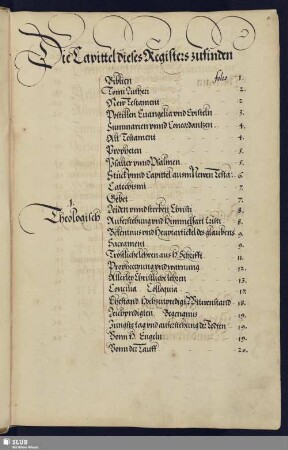 Die Capittel dieses Registers zufinden
folio
Biblien 1.
Tomi Lutheri 2.
New Testament 2.
Postillen Euangelia vnd Episteln 3.
Summarien vnnd Concordantzen 4.
Alt Testament 4.
Propheten 5.
Psalter vnnd Psalmen 5.
Stück vnnd Capittel aus m Newen Testa: 6.
Catechismi 7.
Gebet 7.
1.
Theologisch
Leiden vnnd sterben Christi 8.
Aufferstehung vnd Himmelfart Christi 8.
Bekentnus vnd Heuptartickel des glaubens 9.
Sacrament 9.
Tröstliche lehren aus H. Schrifft 11.
Propheceyung vnd warnung 12.
Allerley Christliche lehren 13.
Concilia Colloquia 17.
Ehestand Hochzeitpredigt Witwenstand 18.
Leichpredigten Begengnus 19.
Jungste tag vnd aufferstehung der Todten 19.
Vonn H. Engeln 19.
Vonn der Tauff 20.
SLUB
Wir führen Wissen.